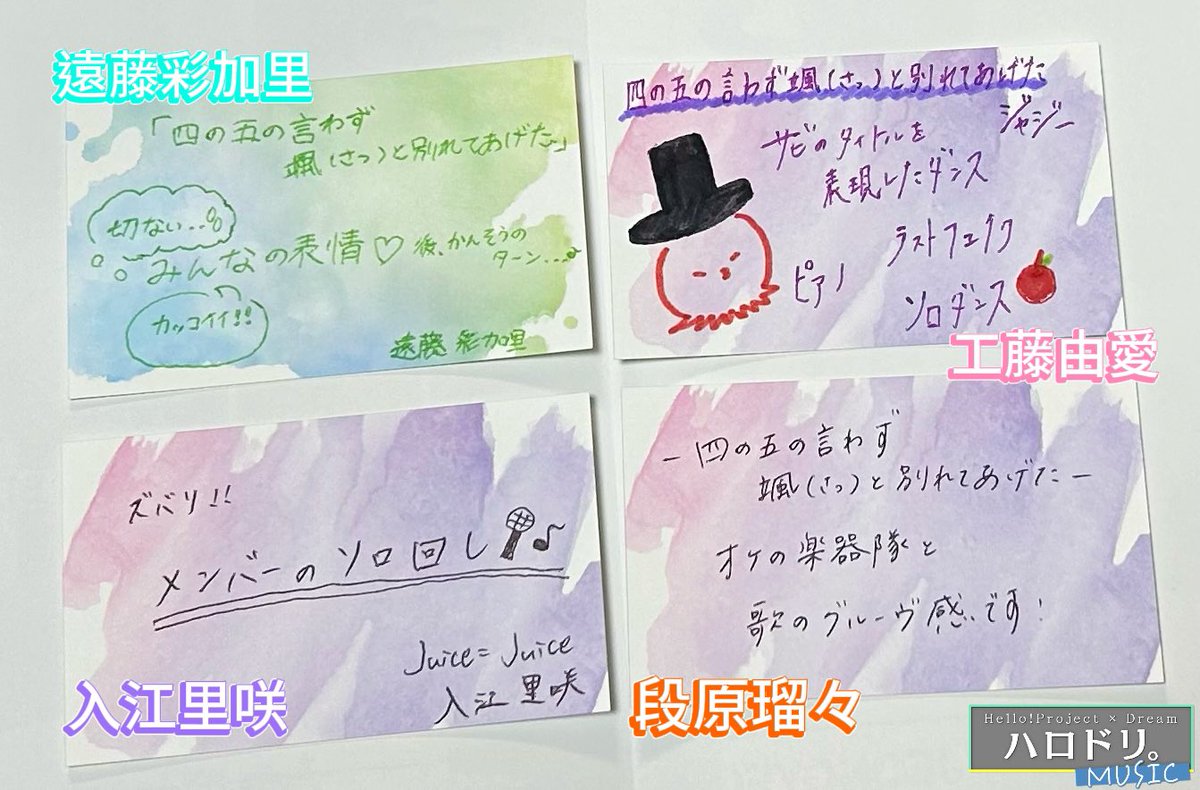 遠藤彩加里
「四の五の言わず
颯(さっ)と別れてあげた」
切ない...
みんなの表情♡後、かんそうの
ターン...♪
カッコイイ!!
遠藤 彩加里
四の五の言わず颯(さっ)と別れてあげた
ジャジー
サビのタイトルを
表現したダンス
ラストフェイク
ピアノ
ソロダンス
工藤由愛
ズバリ!!
メンバーのソロ回し
Juice=Juice
入江里咲
入江里咲
ー四の五の言わず
颯(さっ)と別れてあげたー
オケの楽器隊と
歌のグルーヴ感です!
段原瑠々
Hello!Project × Dream
ハロドリ。
MUSIC